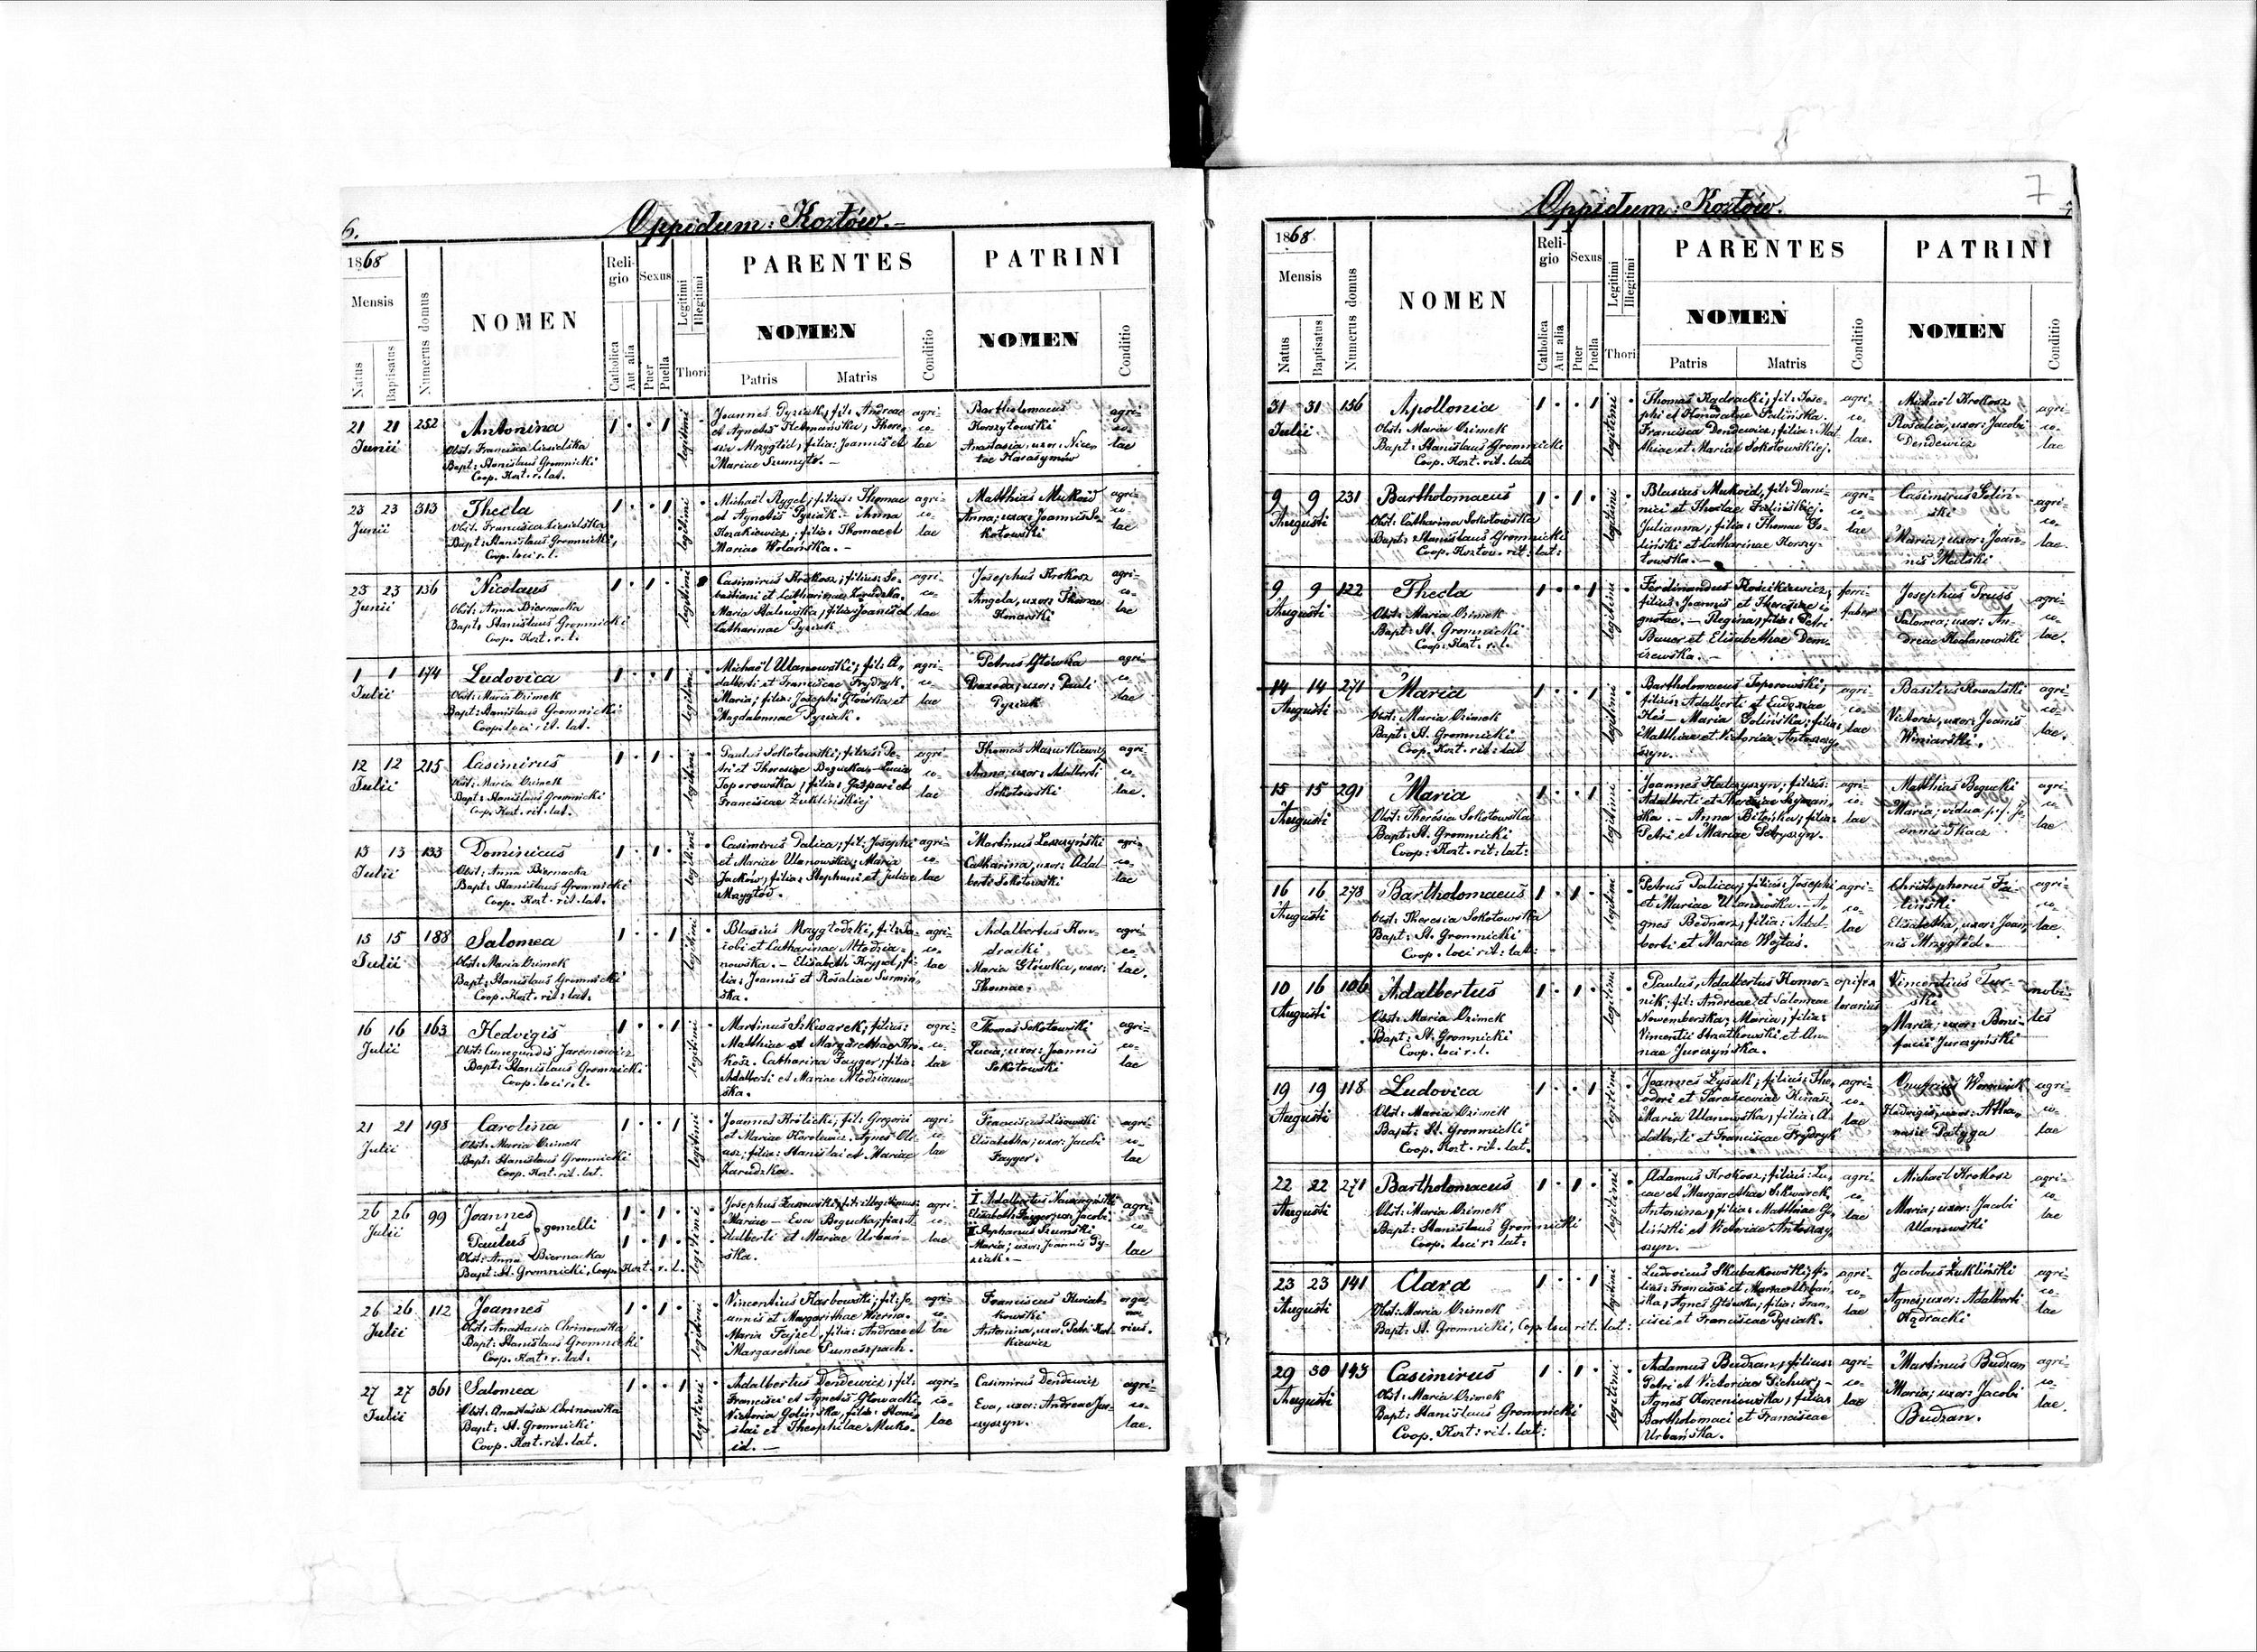 6.
Oppidum: Kozłów.-
1868
Mensis
Natus
Baptisatus
Numerus domus
NOMEN
Religio
Catholica
Aut alia
Sexus
Puer
Puella
Legitimi
Illegitimi
Thori
PARENTES
NOMEN
Patris
Matris
Conditio
PATRINI
NOMEN
Conditio
21 21 252 Antonina
Junii
Obst: Francisca Ciesielska
Bapt: Stanislaus Gromnicki
Coop. Kozt. r. lat.
legitimi
Joannes Pyziak, fil: Andreae
et Agnetis Hetmańska, There-
sia Mrzygłód, filia: Joannis et
Mariae Szumyło. -
agri-
co-
lae
Bartholomaeus
Korszyłowski
Anastasia, uxor: Nice-
tae Harasymów
agri-
co-
lae
23 23 313 Thecla
Junii
Obst: Francisca Ciesielska
Bapt: Stanislaus Gromnicki,
Coop. loci r. l.
legitimi
Michaël Rygel; filius: Thomae
et Agnetis Pyziak. - Anna
Kozakiewicz; filia: Thomae et
Mariae Wolańska. -
agri-
co-
lae
Matthias Mukoid
Anna; uxor: Joannis So-
kołowski
agri-
co-
lae
23 23 136 Nicolaus
Junii
Obst: Anna Biernacka
Bapt: Stanislaus Gromnicki
Coop. Kozt. r. l.
legitimi
Casimirus Krokosz; filius: Se-
bastiani et Catharinae Zarudzka.
Maria Stalowska, filia: Joannis et
Catharinae Pyziak
agri-
co-
lae
Josephus Krokosz
Angela, uxor: Thomae
Konarski
agri-
co-
lae
1 1 174 Ludovica
Julii
Obst: Maria Ozimek
Bapt: Stanislaus Gromnicki
Coop: loci rit. lat.
legitimi
Michaël Ulanowski; fil: A-
dalberti et Franciscae Frydryk.
Maria; filia: Josephi Główka et
Magdalenae Pyziak.
agri-
co-
lae
Petrus Główka
Praxeda, uxor: Pauli
Pyziak
agri-
co-
lae
12 12 215 Casimirus
Julii
Obst: Maria Ozimek
Bapt: Stanislaus Gromnicki
Coop. Kozt. rit. lat.
legitimi
Paulus Sokołowski; filius: Pe-
tri et Theresiae Bogucka - Lucia
Toporowska, filia: Gaspari et
Franciscae Żuklińskiej
agri-
co-
lae
Thomas Mazurkiewicz
Anna; uxor: Adalberti
Sokołowski
agri-
co-
lae.
13 13 133 Dominicus
Julii
Obst: Anna Biernacka
Bapt: Stanislaus Gromnicki
Coop. Kozt. rit. lat.
legitimi
Casimirus Palica; fil: Josephi
et Mariae Ulanowska; Maria
Jacków, filia: Stephani et Juliae
Mrzygłód.
agri-
co-
lae
Martinus Leszczyński
Catharina, uxor: Adal-
berti Sokołowski
agri-
co-
lae
15 15 188 Salomea
Julii
Obst: Maria Ozimek
Bapt: Stanislaus Gromnicki
Coop. Kozt. rit: lat:
legitimi
Blasius Mrzygłodzki, fil: Ja-
cobi et Catharinae Młodzia-
nowska. - Elisabeth Krypel, fi-
lia: Joannis et Rosaliae Surmiń-
ska.
agri-
co-
lae
Adalbertus Kon-
dracki
Maria Główka, uxor:
Thomae.
agri-
co-
lae.
16 16 163 Hedvigis
Julii
Obst: Cunegundis Jaremowicz
Bapt: Stanislaus Gromnicki
Coop. loci r. l.
legitimi
Martinus Skwarek; filius:
Matthiae et Margarethae Kro-
kosz. Catharina Fayger; filia:
Adalberti et Mariae Młodzianow-
ska.
agri-
co-
lae
Thomas Sokołowski
Lucia; uxor: Joannis
Sokołowski
agri-
co-
lae
21 21 198 Carolina
Julii
Obst: Maria Ozimek
Bapt: Stanislaus Gromnicki
Coop. Kozt. rit. lat.
legitimi
Joannes Królicki; fil: Gregorii
et Mariae Karolewicz. Agnes Oli-
asz; filia: Stanislai et Mariae
Zarudzka.
agri-
co-
lae
Franciscus Lisowski
Elisabetha; uxor: Jacobi
Fayger.
agri-
co-
lae
26 26 99 Joannes
Julii
et gemelli
Paulus
Obst: Anna Biernacka
Bapt: St. Gromnicki, Coop. Kozt. r. l.
legitimi
Mariae - Eva Bogucka, filia: A-
dalberti et Mariae Urbań-
ska.
agri-
co-
lae
I Adalbertus
Elisabeth Fayger, uxor: Jacobi
II Stephanus Szumski
Maria; uxor: Joannis Py-
ziak. -
agri-
co-
lae
26 26 112 Joannes
Julii
Obst: Anastasia Chrinowska
Bapt: Stanislaus Gromnicki
Coop. Kozt. r. lat:
legitimi
Vincentius Harbowski; fil: Jo-
annis et Margarithae Wierna.
Maria Fajzel, filia: Andreae et
Margarethae
agri-
co-
lae
Franciscus Kwiat-
kowski
Antonina, uxor: Petri Kot-
kiewicz
orga-
na-
rius.
27 27 361 Salomea
Julii
Obst: Anastasia Chrinowska
Bapt: St. Gromnicki
Coop. Kozt. rit. lat.
legitimi
Adalbertus Dendewicz; fil:
Francisci et Agnetis Głowacki,
Victoria Golińska, filia: Stani-
slai et Theophilae Muko-
id. -
agri-
co-
lae
Casimirus Dendewicz
Eva, uxor: Andreae Jur-
czyszyn.
agri-
co-
lae.
7
Oppidum: Kozłów.
1868
Mensis
Natus
Baptisatus
Numerus domus
NOMEN
Religio
Catholica
Aut alia
Sexus
Puer
Puella
Legitimi
Illegitimi
Thori
PARENTES
NOMEN
Patris
Matris
Conditio
PATRINI
NOMEN
Conditio
31 31 156 Apollonia
Julii
Obst: Maria Ozimek
Bapt: Stanislaus Gromnicki
Coop. Kozt. rit. lat:
legitimi
Thomas Kądracki, fil: Jose-
phi et Honoratae Palińska.
Francisca Dendewicz; filia: Mat-
thiae et Mariae Sokołowskiej.
agri-
co-
lae.
Michaël Krokosz
Rosalia, uxor: Jacobi
Dendewicz
agri-
co-
lae
9 9 231 Bartholomaeus
Augusti
Obst: Catharina Sokołowska
Bapt: Stanislaus Gromnicki
Coop. Kozłov. rit: lat:
legitimi
Blasius Mukoid, fil: Domi-
nici et Theclae Falińskiej.
Julianna; filia: Thomae Go-
liński et Catharinae Korszy-
łowska. -
agri-
co-
lae
Casimirus Goliń-
ski
Maria; uxor: Joan-
nis Malski
agri-
co-
lae.
9 9 122 Thecla
Augusti
Obst: Maria Ozimek
Bapt: St. Gromnicki
Coop. Kozt. r. l.
legitimi
Ferdinandus Kościkiewicz,
filius: Joannis et Theresiae i-
gnotae. - Regina, filia: Petri
Bauer et Elisabethae Dem-
czewska. -
ferri-
faber
Josephus Pruss
Salomea; uxor: An-
dreae Kochanowski
agri-
co-
lae.
14 14 271 Maria
Augusti
Obst: Maria Ozimek
Bapt: St. Gromnicki
Coop. Kozt. rit: lat
legitimi
Bartholomaeus Toporowski;
filius: Adalberti et Eudoxiae
Maria Golińska; filia:
Matthiae et Victoriae Antoszczy-
szyn.
agri-
co-
lae
Basilius Kowalski
Victoria, uxor: Joanis
Winiarski.
agri-
co-
lae.
15 15 291 Maria
Augusti
Obst: Theresia Sokołowska
Bapt: St. Gromnicki
Coop: Kozt. rit: lat:
legitimi
Joannes Hałczyszyn, filius:
Adalberti et Theresiae Szyman-
ska. - Anna Bileńka, filia:
Petri et Mariae Petryszyn.
agri-
co-
lae
Matthias Bogucki
Maria; vidua p. f. Jo-
annis Tkacz
agri-
co-
lae
16 16 278 Bartholomaeus
Augusti
Obst: Theresia Sokołowska
Bapt: St. Gromnicki
Coop. loci rit: lat:
legitimi
Petrus Palica; filius: Josephi
et Mariae Ulanowska. - A-
gnes Bednarz, filia: Adal-
berti et Mariae Wojtas.
agri-
co-
lae
Christophorus Fa-
liński
Elisabetha, uxor: Joan-
nis Mrzygłód.
agri-
co-
lae
10 16 106 Adalbertus
Augusti
Obst: Maria Ozimek
Bapt: St. Gromnicki
Coop. loci r. l.
legitimi
Paulus, Adalbertus Komor-
nik; fil: Andreae et Salomeae
Nowemberska; Maria; filia:
Vincentii Stratkowski et An-
nae Jurczyńska.
opifex
lorarius
Vincentius Tur-
ski
Maria, uxor: Boni-
facii Jurczyński
nobi-
les
19 19 118 Ludovica
Augusti
Obst: Maria Ozimek
Bapt: St. Gromnicki
Coop. Kozt. rit. lat.
legitimi
Joannes Łysak; filius: The-
odori et Parasceviae Kinasz
Maria Ulanowska; filia: A-
dalberti et Franciscae Frydryk
agri-
co-
lae
Onufrius Woroniuk
Hedvigis, uxor: Atha-
nasii Patyga
agri-
co-
lae
22 22 271 Bartholomaeus
Augusti
Obst: Maria Ozimek
Bapt: Stanislaus Gromnicki
Coop. loci r: lat:
legitimi
Adamus Krokosz; filius: Lu-
cae et Margarethae Skwarek
Antonina; filia: Matthiae Go-
liński et Victoriae Antoszczy-
szyn. -
agri-
co-
lae
Michaël Krokosz
Maria; uxor: Jacobi
Ulanowski
agri-
co-
lae
23 23 141 Clara
Augusti
Obst: Maria Ozimek
Bapt: St. Gromnicki, Coop. loci rit. lat:
legitimi
Ludovicus Skabakowski; fi-
lius: Francisci et Mariae Urban-
ska; Agnes Główka; filia: Fran-
cisci et Franciscae Pyziak.
agri-
co-
lae
Jacobus Żukliński
Agnes; uxor: Adalberti
Kądracki
agri-
co-
lae
29 30 143 Casimirus
Augusti
Obst: Maria Ozimek
Bapt: Stanislaus Gromnicki
Coop. Kozt: rit. lat:
legitimi
Adamus Budzan; filius:
Petri et Victoriae Pichur, -
Agnes Korzeniowska, filia:
Bartholomaei et Franciscae
Urbańska.
agri-
co-
lae
Martinus Budzan
Maria; uxor: Jacobi
Budzan.
agri-
co-
lae.